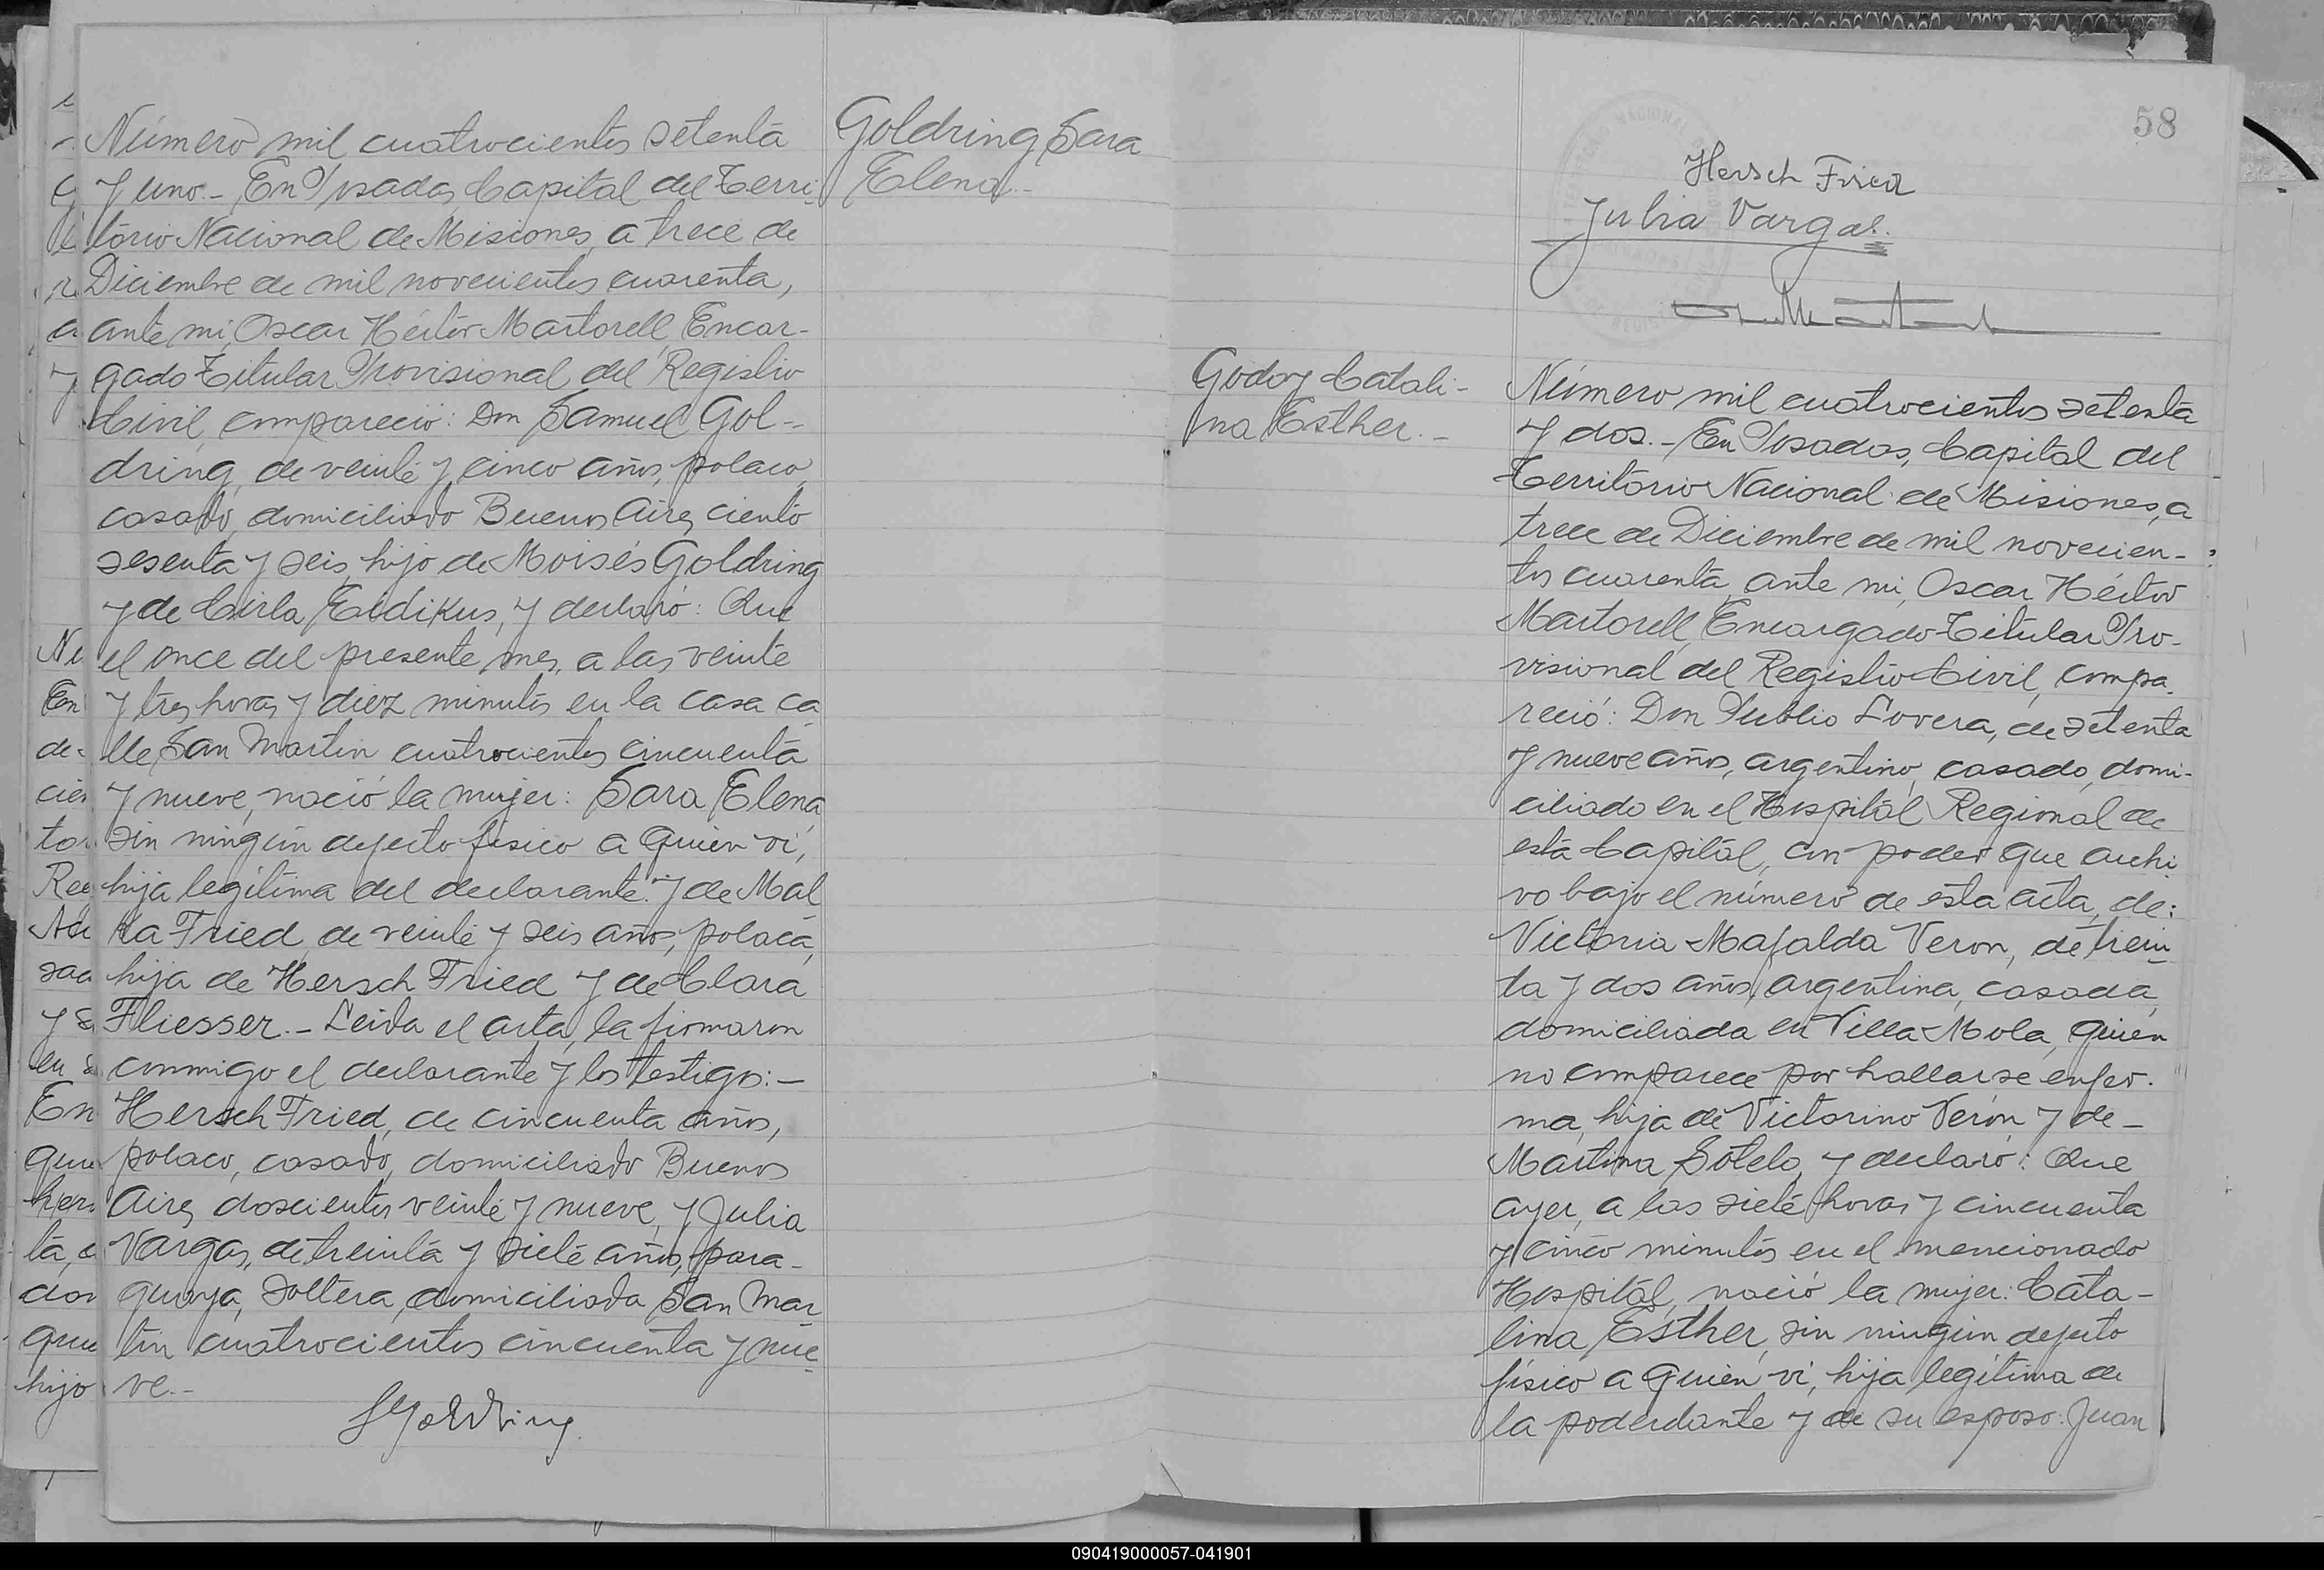 Número mil cuatrocientos setenta
y uno.- En Posadas, Capital del Terri-
torio Nacional de Misiones, a trece de
Diciembre de mil novecientos cuarenta,
ante mi, Oscar Héctor Martorell, Encar-
gado Titular Provisional del Registro
Civil, compareció: Don Samuel Gol-
dring, de veinte y cinco años, polaco,
casado, domiciliado Buenos Aires ciento
sesenta y seis, hijo de Moisés Goldring
y de Cirla Eidikus, y declaró: Que
el once del presente mes, a las veinte
y tres horas y diez minutos en la casa ca
lle San Martin cuatrocientos cincuenta
y nueve, nació la mujer: Sara Elena,
sin ningún defecto fisico a quien vi,
hija legítima del declarante y de Mal
ka Fried, de veinte y seis años, polaca,
hija de Hersch Fried y de Clara
Fliesser.- Leida el acta, la firmaron
conmigo el declarante y los testigos:-
Hersch Fried, de cincuenta años,
polaco, casado, domiciliado Buenos
Aires doscientos veinte y nueve, y Julia
Vargas, de treinta y siete años, para-
guaya, soltera, domiciliada San Mar
tin cuatrocientos cincuenta y nue-
ve.-
SGoldring
Goldring Sara
Elena.-
58
Hersch Fried
Julia Vargas.
Godoy Catali-
na Esther.-
Número mil cuatrocientos setenta
y dos.- En Posadas, Capital del
Territorio Nacional de Misiones, a
trece de Diciembre de mil novecien-
tos cuarenta, ante mi, Oscar Héctor
Martorell, Encargado Titular Pro-
visional del Registro Civil, compa-
reció: Don Publio Lovera, de setenta
y nueve años, argentino, casado, domi-
ciliado en el Hospital Regional de
esta Capital, con poder que archi
vo bajo el número de esta acta, de:
Victoria Mafalda Veron, de trein-
ta y dos años, argentina, casada,
domiciliada en Villa Mola, quien
no comparece por hallarse enfer-
ma, hija de Victorino Verón y de-
Martina Sotelo, y declaró: Que
ayer, a las siete horas y cincuenta
y cinco minutos en el mencionado
Hospital, nació la mujer: Cata-
lina Esther, sin ningún defecto
físico a quien vi, hija legítima de
la poderdante y de su esposo: Juan
090419000057-041901